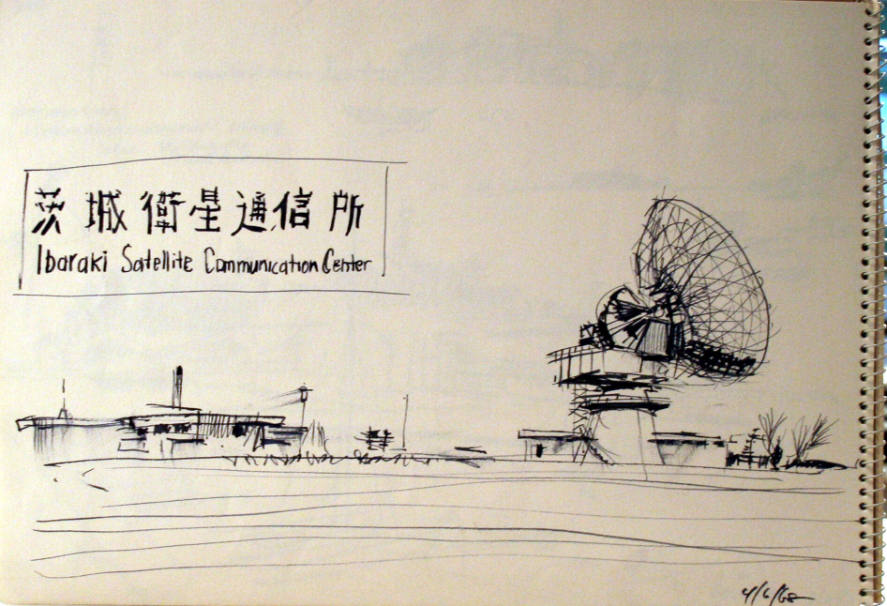 茨城衛星通信所
Ibaraki Satellite Communication Center
4/6/68